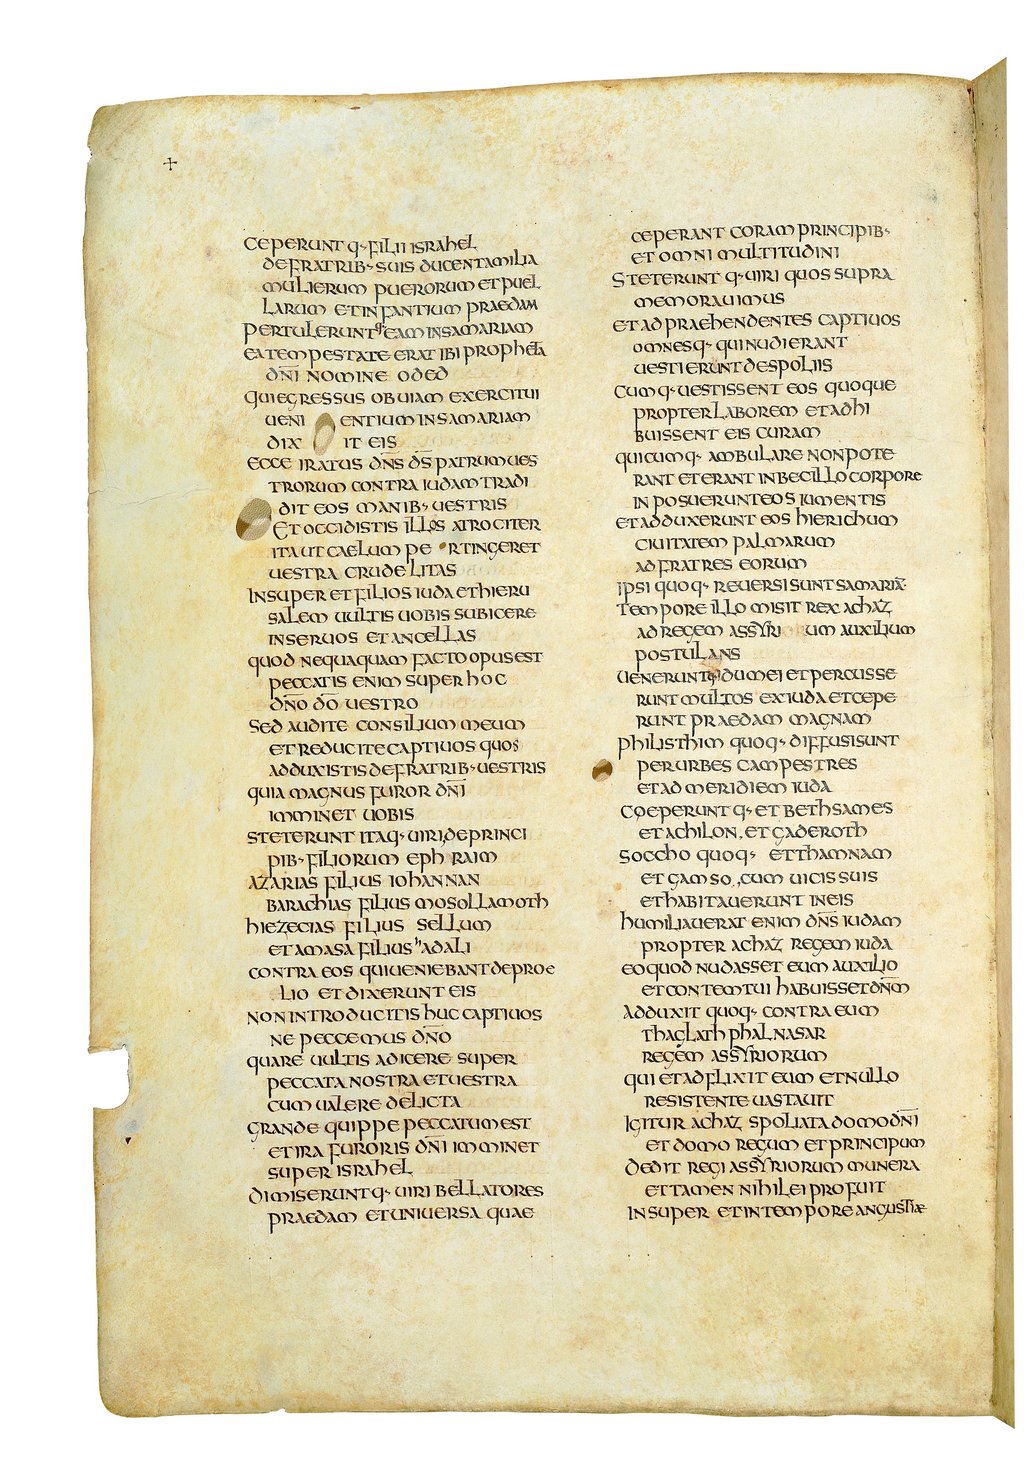 +
CEPERUNT Q· FILII ISRAHEL
DE FRATRIB· SUIS DUCENTA MILIA
MULIERUM PUERORUM ET PUEL
LARUM ET INFANTIUM PRAEDAM
PERTULERUNTQ· EAM IN SAMARIAM
EA TEMPESTATE ERAT IBI PROPHETA
DN̄I NOMINE ODED
QUI EGRESSUS OBUIAM EXERCITUI
UENIENTIUM IN SAMARIAM
DIXIT EIS
ECCE IRATUS DN̄S D̄S PATRUM UES
TRORUM CONTRA IUDAM TRADI
DIT EOS MANIB· UESTRIS
ET OCCIDISTIS ILLOS ATROCITER
ITA UT CAELUM PERTINGERET
UESTRA CRUDELITAS
INSUPER ET FILIOS IUDA ET HIERU
SALEM UULTIS UOBIS SUBICERE
IN SERUOS ET ANCELLAS
QUOD NEQUAQUAM FACTO OPUS EST
PECCATIS ENIM SUPER HOC
DN̄O D̄O UESTRO
SED AUDITE CONSILIUM MEUM
ET REDUCITE CAPTIUOS QUOS
ADDUXISTIS DE FRATRIB· UESTRIS
QUIA MAGNUS FUROR DN̄I
IMMINET UOBIS
STETERUNT ITAQ· UIRI DE PRINCI
PIB· FILIORUM EPHRAIM
AZARIAS FILIUS IOHANNAN
BARACHIAS FILIUS MOSOLLAMOTH
HIEZECIAS FILIUS SELLUM
ET AMASA FILIUS HADALI
CONTRA EOS QUI UENIEBANT DE PROE
LIO ET DIXERUNT EIS
NON INTRODUCITIS HUC CAPTIUOS
NE PECCEMUS DN̄O
QUARE UULTIS ADICERE SUPER
PECCATA NOSTRA ET UESTRA
CUMUALERE DELICTA
GRANDE QUIPPE PECCATUM EST
ET IRA FURORIS DN̄I IMMINET
SUPER ISRAHEL
DIMISERUNTQ· UIRI BELLATORES
PRAEDAM ET UNIUERSA QUAE
CEPERANT CORAM PRINCIPIB·
ET OMNI MULTITUDINI
STETERUNTQ· UIRI QUOS SUPRA
MEMORAUIMUS
ET ADPRAEHENDENTES CAPTIUOS
OMNESQ· QUI NUDI ERANT
UESTIERUNT DE SPOLIIS
CUMQ· UESTISSENT EOS QUOQUE
PROPTER LABOREM ET ADHI
BUISSENT EIS CURAM
QUICUMQ· AMBULARE NON POTE
RANT ET ERANT INBECILLO CORPORE
INPOSUERUNT EOS IUMENTIS
ET ADDUXERUNT EOS HIERICHUM
CIUITATEM PALMARUM
AD FRATRES EORUM
IPSI QUOQ· REUERSI SUNT SAMARIĀ·
TEMPORE ILLO MISIT REX ACHAZ
AD REGEM ASSYRIUM AUXILIUM
POSTULANS
UENERUNTQ· IDUMEI ET PERCUSSE
RUNT MULTOS EX IUDA ET CEPE
RUNT PRAEDAM MAGNAM
PHILISTHIM QUOQ· DIFFUSI SUNT
PER URBES CAMPESTRES
ET AD MERIDIEM IUDA
COEPERUNTQ· ET BETHSAMES
ET ACHILON. ET GADEROTH
SOCCHO QUOQ· ET THAMNAM
ET GAMSO, CUM UICIS SUIS
ET HABITAUERUNT IN EIS
HUMILIAUERAT ENIM DN̄S IUDAM
PROPTER ACHAZ REGEM IUDA
EO QUOD NUDASSET EUM AUXILIO
ET CONTEMTUI HABUISSET DN̄M
ADDUXIT QUOQ· CONTRA EUM
THAGLATHPHALNASAR
REGEM ASSYRIORUM
QUI ET ADFLIXIT EUM ET NULLO
RESISTENTE UASTAUIT
IGITUR ACHAZ SPOLIATA DOMO DN̄I
ET DOMO REGUM ET PRINCIPUM
DEDIT REGI ASSYRIORUM MUNERA
ET TAMEN NIHIL EI PROFUIT
INSUPER ET IN TEMPORE ANGUSTIAE